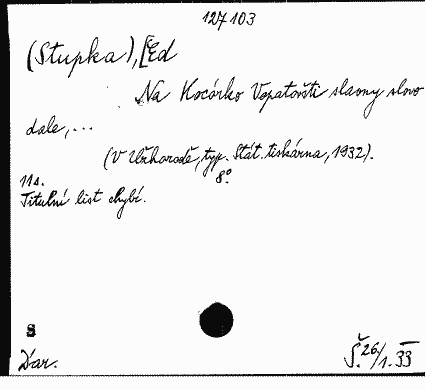 127103
(Stupka), [Ed
Na Kocúrko Vopatovsti slavny slovo
dale,...
(V Užhorodě, typ. Stát. tiskárna, 1932).
11s. 8°.
Titulní list chybí.
S
Dar. Š. 26/1. 33